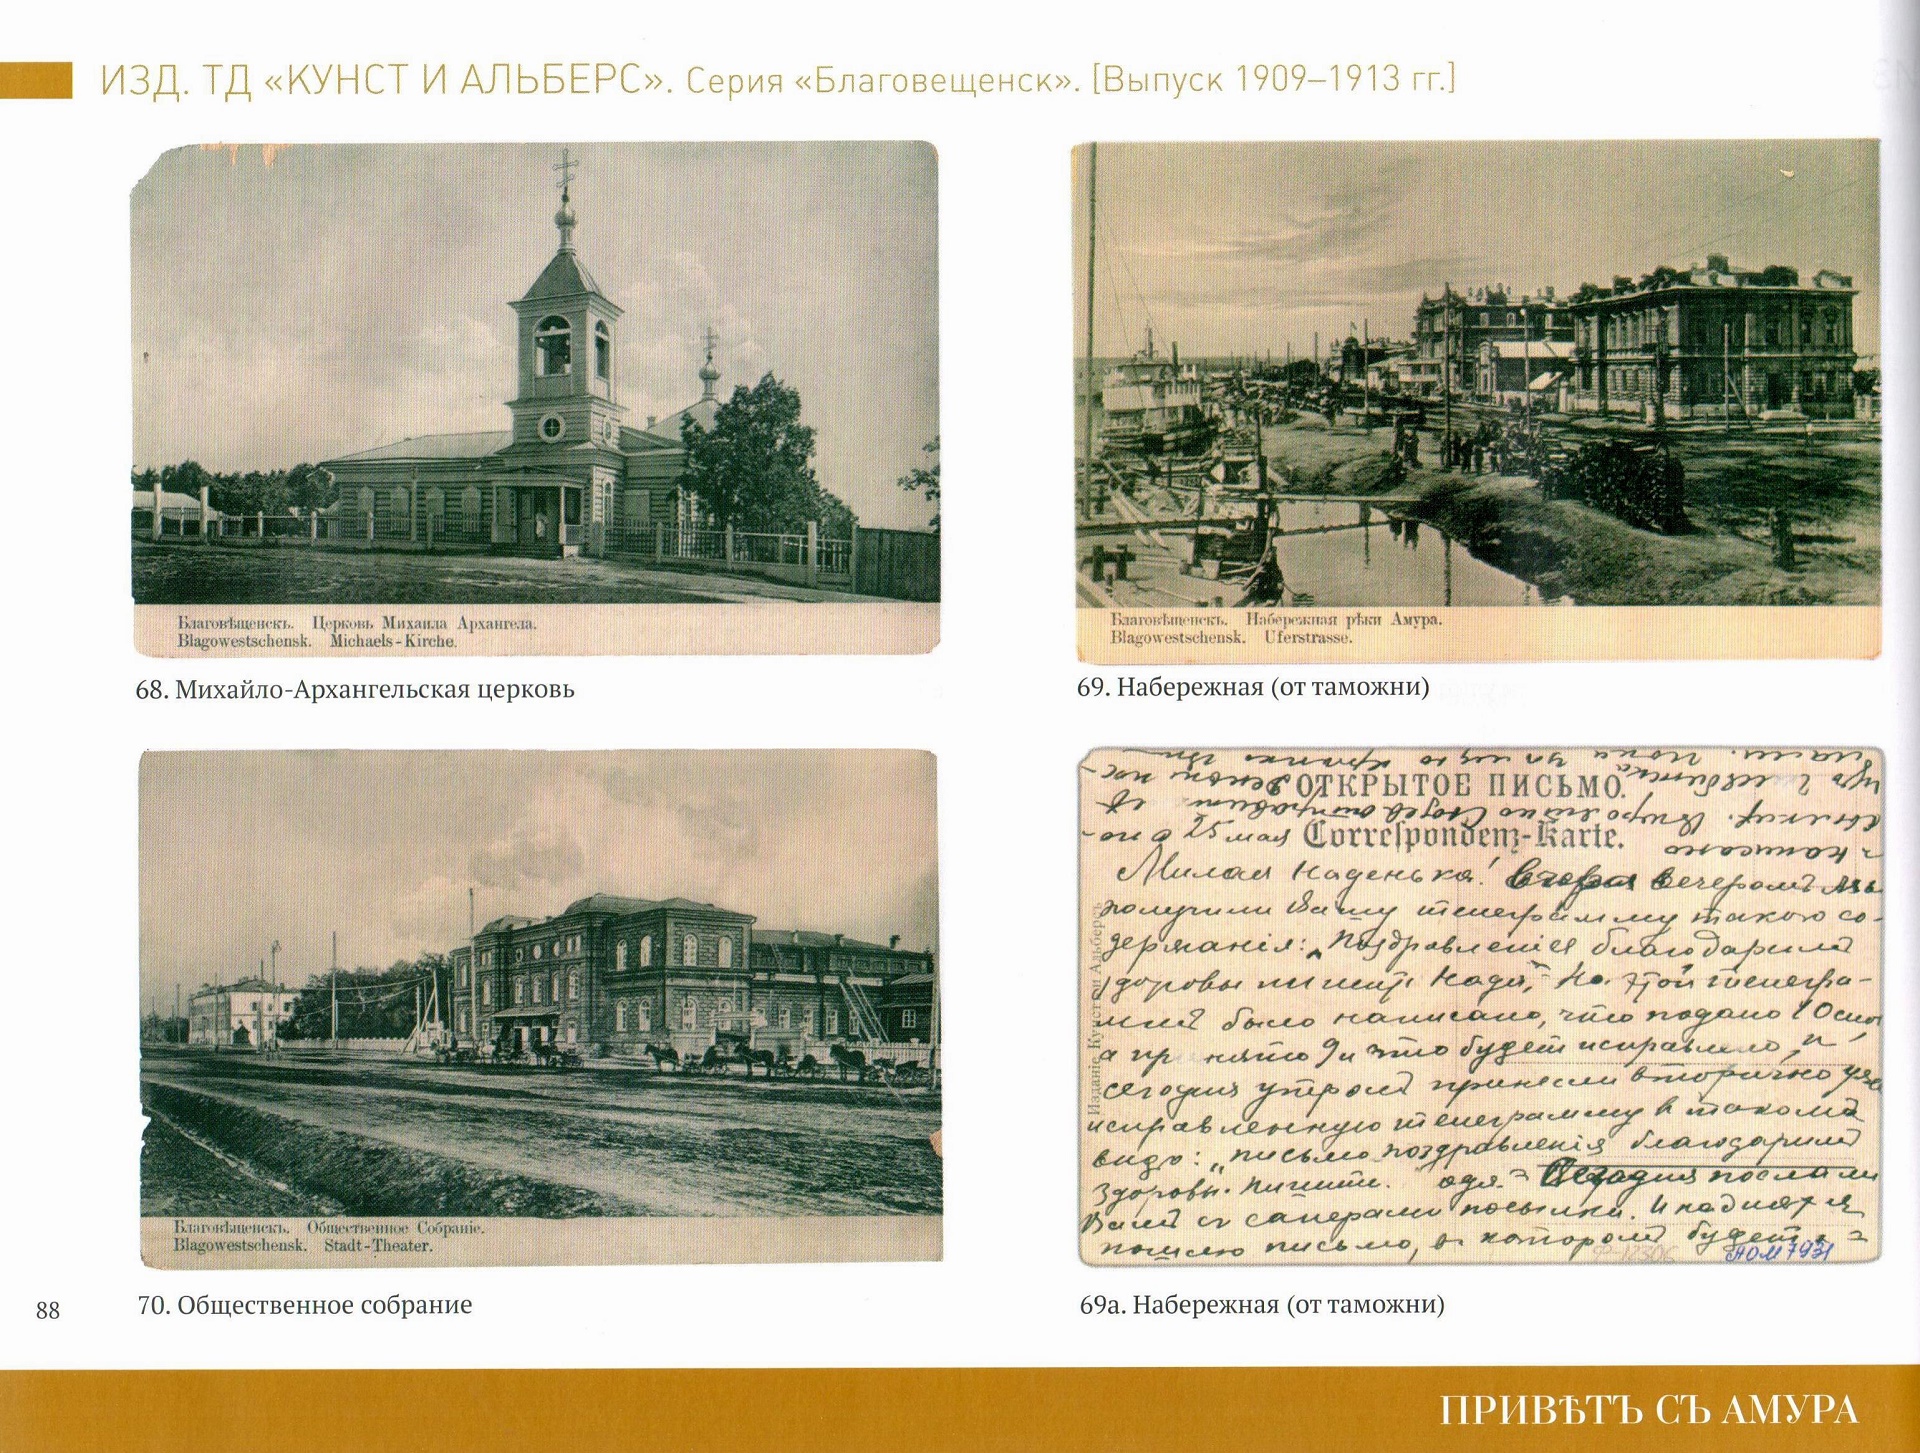 ИЗД. ТД «КУНСТ И АЛЬБЕРС». Серия «Благовещенск». [Выпуск 1909–1913 гг.]
Благовѣщенскъ. Церковь Михаила Архангела.
Blagowestschensk. Michaels-Kirche.
68. Михайло-Архангельская церковь
Благовѣщенскъ. Набережная рѣки Амура.
Blagowestschensk. Uferstrasse.
69. Набережная (от таможни)
Благовѣщенскъ. Общественное Собраніе.
Blagowestschensk. Stadt-Theater.
70. Общественное собрание
ОТКРЫТОЕ ПИСЬМО.
25 мая Correspondenz-Karte.
Милая Наденька! вечеромъ мы
получили Вашу телеграмму такого со-
держанія: „Поздравленія благодаримъ
здоровы пишите Надя", На этой телегра-
ммѣ было написано, что подано 10
а принято 9 и что будетъ исправлено, и
сегодня утромъ принесли вторично уже
исправленную телеграмму въ такомъ
видѣ: „письмо поздравленія благодаримъ
здоровы. пишите. Сегодня послали
Вамъ съ посылки. И
пошлю письмо, въ которомъ будетъ
Изданіе Кунстъ и Альберсъ
АОМ 7931
69а. Набережная (от таможни)
88
ПРИВѢТЪ СЪ АМУРА